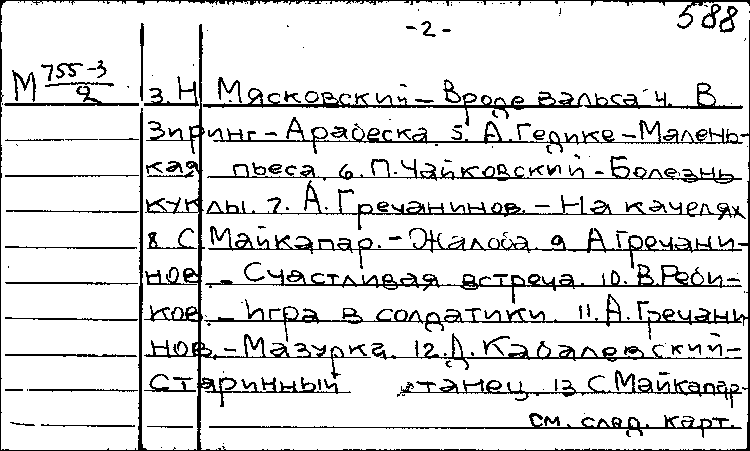 588
-2-
М 755-3/2 3. Н Мясковский - Вроде вальса 4. В
Зиринг - Арабеска. 5. А. Гедике - Малень-
кая пьеса. 6. П. Чайковский - Болезнь
куклы. 7. А. Гречанинов. - На качелях
8. С. Майкапар. - Жалоба. 9 А. Гречани-
нов. - Счастливая встреча. 10. В. Реби-
ков. - Игра в солдатики. 11. А. Гречани
нов. - Мазурка. 12. Д. Кабалевский -
Старинный танец. 13. С. Майкапар-
см. след. карт.